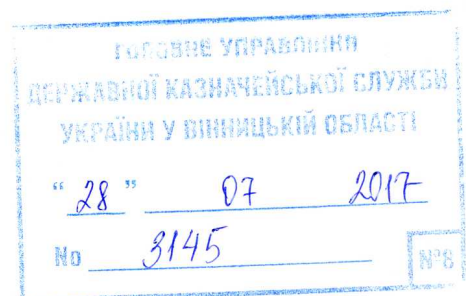 ГОЛОВНЕ УПРАВЛІННЯ
ДЕРЖАВНОЇ КАЗНАЧЕЙСЬКОЇ СЛУЖБИ
УКРАЇНИ У ВІННИЦЬКІЙ ОБЛАСТІ
“ 28 ” 07 2017
No 3145
№6